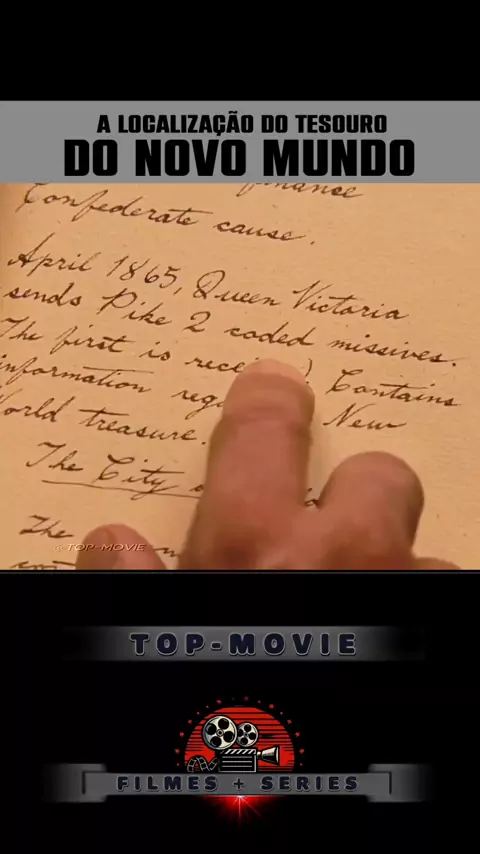 A LOCALIZAÇÃO DO TESOURO
DO NOVO MUNDO
finance
Confederate cause.
April 1865, Queen Victoria
sends Pike 2 coded missives.
The first is Contains
information New
World treasure.
The City
The
TOP-MOVIE
TOP-MOVIE
FILMES + SERIES